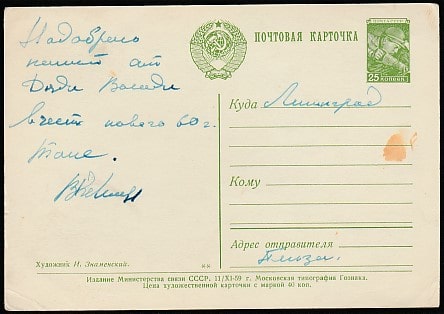 На добрую
память от
Дяди Васи
в честь нового 60 г.
Тане.
ПОЧТОВАЯ КАРТОЧКА
25 КОПЕЕК
Куда Ленинград
Кому
Адрес отправителя
Пенза.
Художник И. Знаменский.
Издание Министерства связи СССР. 11/XI-59 г. Московская типография Гознака.
Цена художественной карточки с маркой 40 коп.